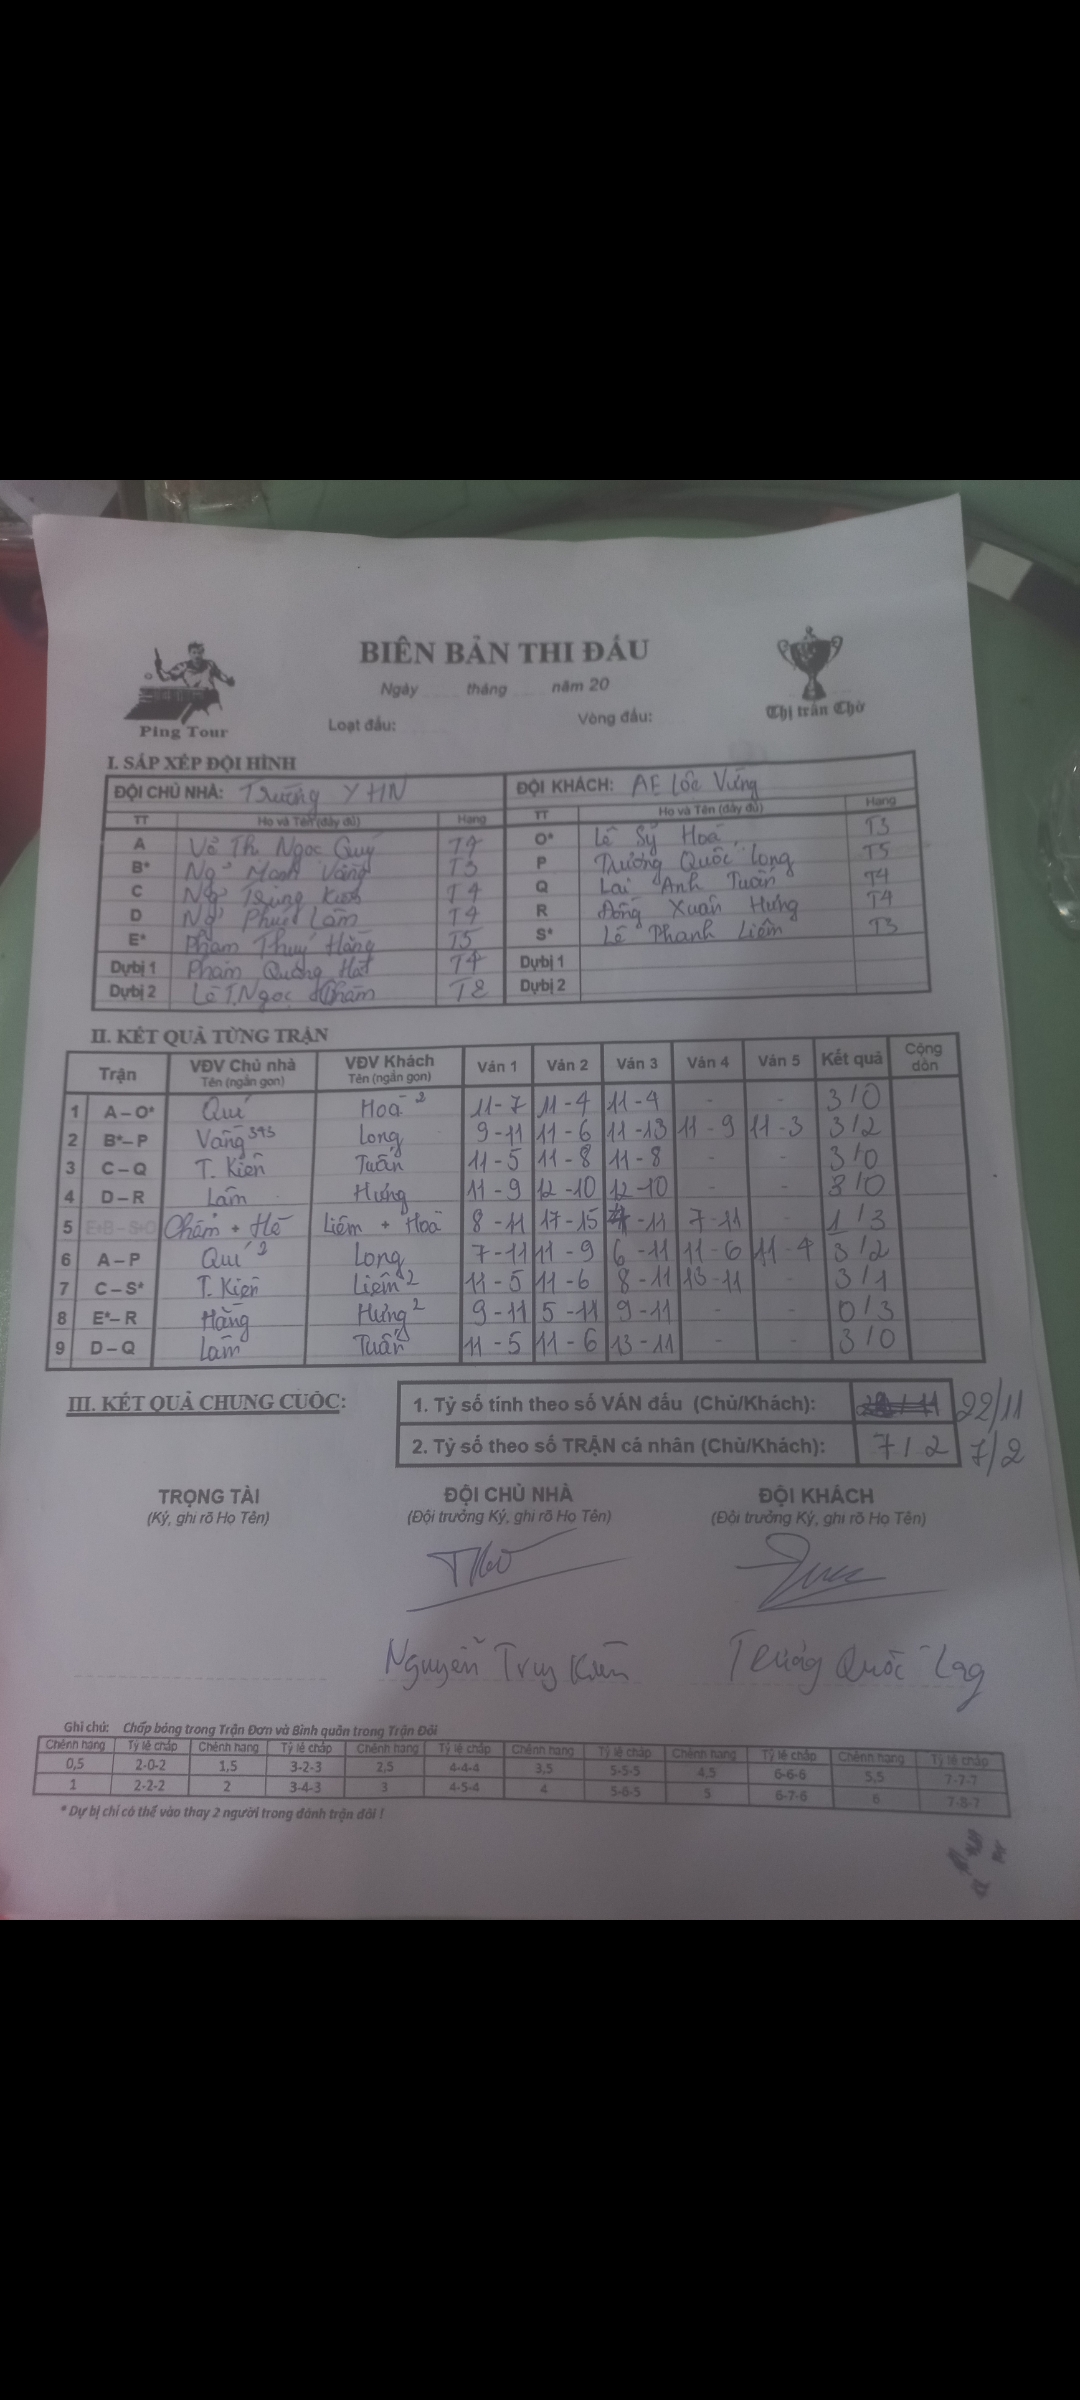 BIÊN BẢN THI ĐẤU
Ngày tháng năm 20
Loạt đấu: Vòng đấu:
Ping Tour
Thị trấn Chờ
I. SẮP XẾP ĐỘI HÌNH
ĐỘI CHỦ NHÀ: Trường Y HN ĐỘI KHÁCH: AE Lộc Vừng
TT Họ và Tên (đầy đủ) Hạng TT Họ và Tên (đầy đủ) Hạng
A Võ Th Ngọc Quý O* Lê Sỹ Hoà T3
B* Ngô Mạnh Vang T3 P Trương Quốc Long T5
C Ngô Trung Kiên T4 Q Lại Anh Tuấn T4
D Ngô Phúc Lâm T4 R Đồng Xuân Hưng T4
E* Phạm Thuý Hằng T5 S* Lê Thanh Liêm T3
Dự bị 1 Phạm Quang T4 Dự bị 1
Dự bị 2 Lê T.Ngọc Châm T8 Dự bị 2
II. KẾT QUẢ TỪNG TRẬN
Trận VĐV Chủ nhà Tên (ngắn gọn) VĐV Khách Tên (ngắn gọn) Ván 1 Ván 2 Ván 3 Ván 4 Ván 5 Kết quả Cộng dồn
1 A – O* Quí Hoà 2 11-7 11-4 11-4 - - 3/0
2 B*– P Vang 343 Long 9-11 11-6 11-13 11-9 11-3 3/2
3 C – Q T. Kiên Tuấn 11-5 11-8 11-8 - - 3/0
4 D – R Lâm Hưng 11-9 12-10 12-10 - - 3/0
5 Châm + Liêm + Hoà 8-11 17-15 -11 7-11 - 1/3
6 A – P Quí 2 Long 7-11 11-9 6-11 11-6 11-4 3/2
7 C – S* T. Kiên Liêm 2 11-5 11-6 8-11 13-11 - 3/1
8 E*– R Hằng Hưng 2 9-11 5-11 9-11 - - 0/3
9 D – Q Lâm Tuấn 11-5 11-6 13-11 - - 3/0
III. KẾT QUẢ CHUNG CUỘC:
1. Tỷ số tính theo số VÁN đấu (Chủ/Khách): 22/11
2. Tỷ số theo số TRẬN cá nhân (Chủ/Khách): 7/2 7/2
TRỌNG TÀI ĐỘI CHỦ NHÀ ĐỘI KHÁCH
(Ký, ghi rõ Họ Tên) (Đội trưởng Ký, ghi rõ Họ Tên) (Đội trưởng Ký, ghi rõ Họ Tên)
Nguyễn Kiên Trương Quốc Long
Ghi chú: Chấp bóng trong Trận Đơn và Bình quân trong Trận Đôi
Chênh hạng Tỷ lệ chấp Chênh hạng Tỷ lệ chấp Chênh hạng Tỷ lệ chấp Chênh hạng Tỷ lệ chấp Chênh hạng Tỷ lệ chấp Chênh hạng Tỷ lệ chấp
0,5 2-0-2 1,5 3-2-3 2,5 4-4-4 3,5 5-5-5 4,5 6-6-6 5,5 7-7-7
1 2-2-2 2 3-4-3 3 4-5-4 4 5-6-5 5 6-7-6 6 7-8-7
* Dự bị chỉ có thể vào thay 2 người trong đánh trận đôi !